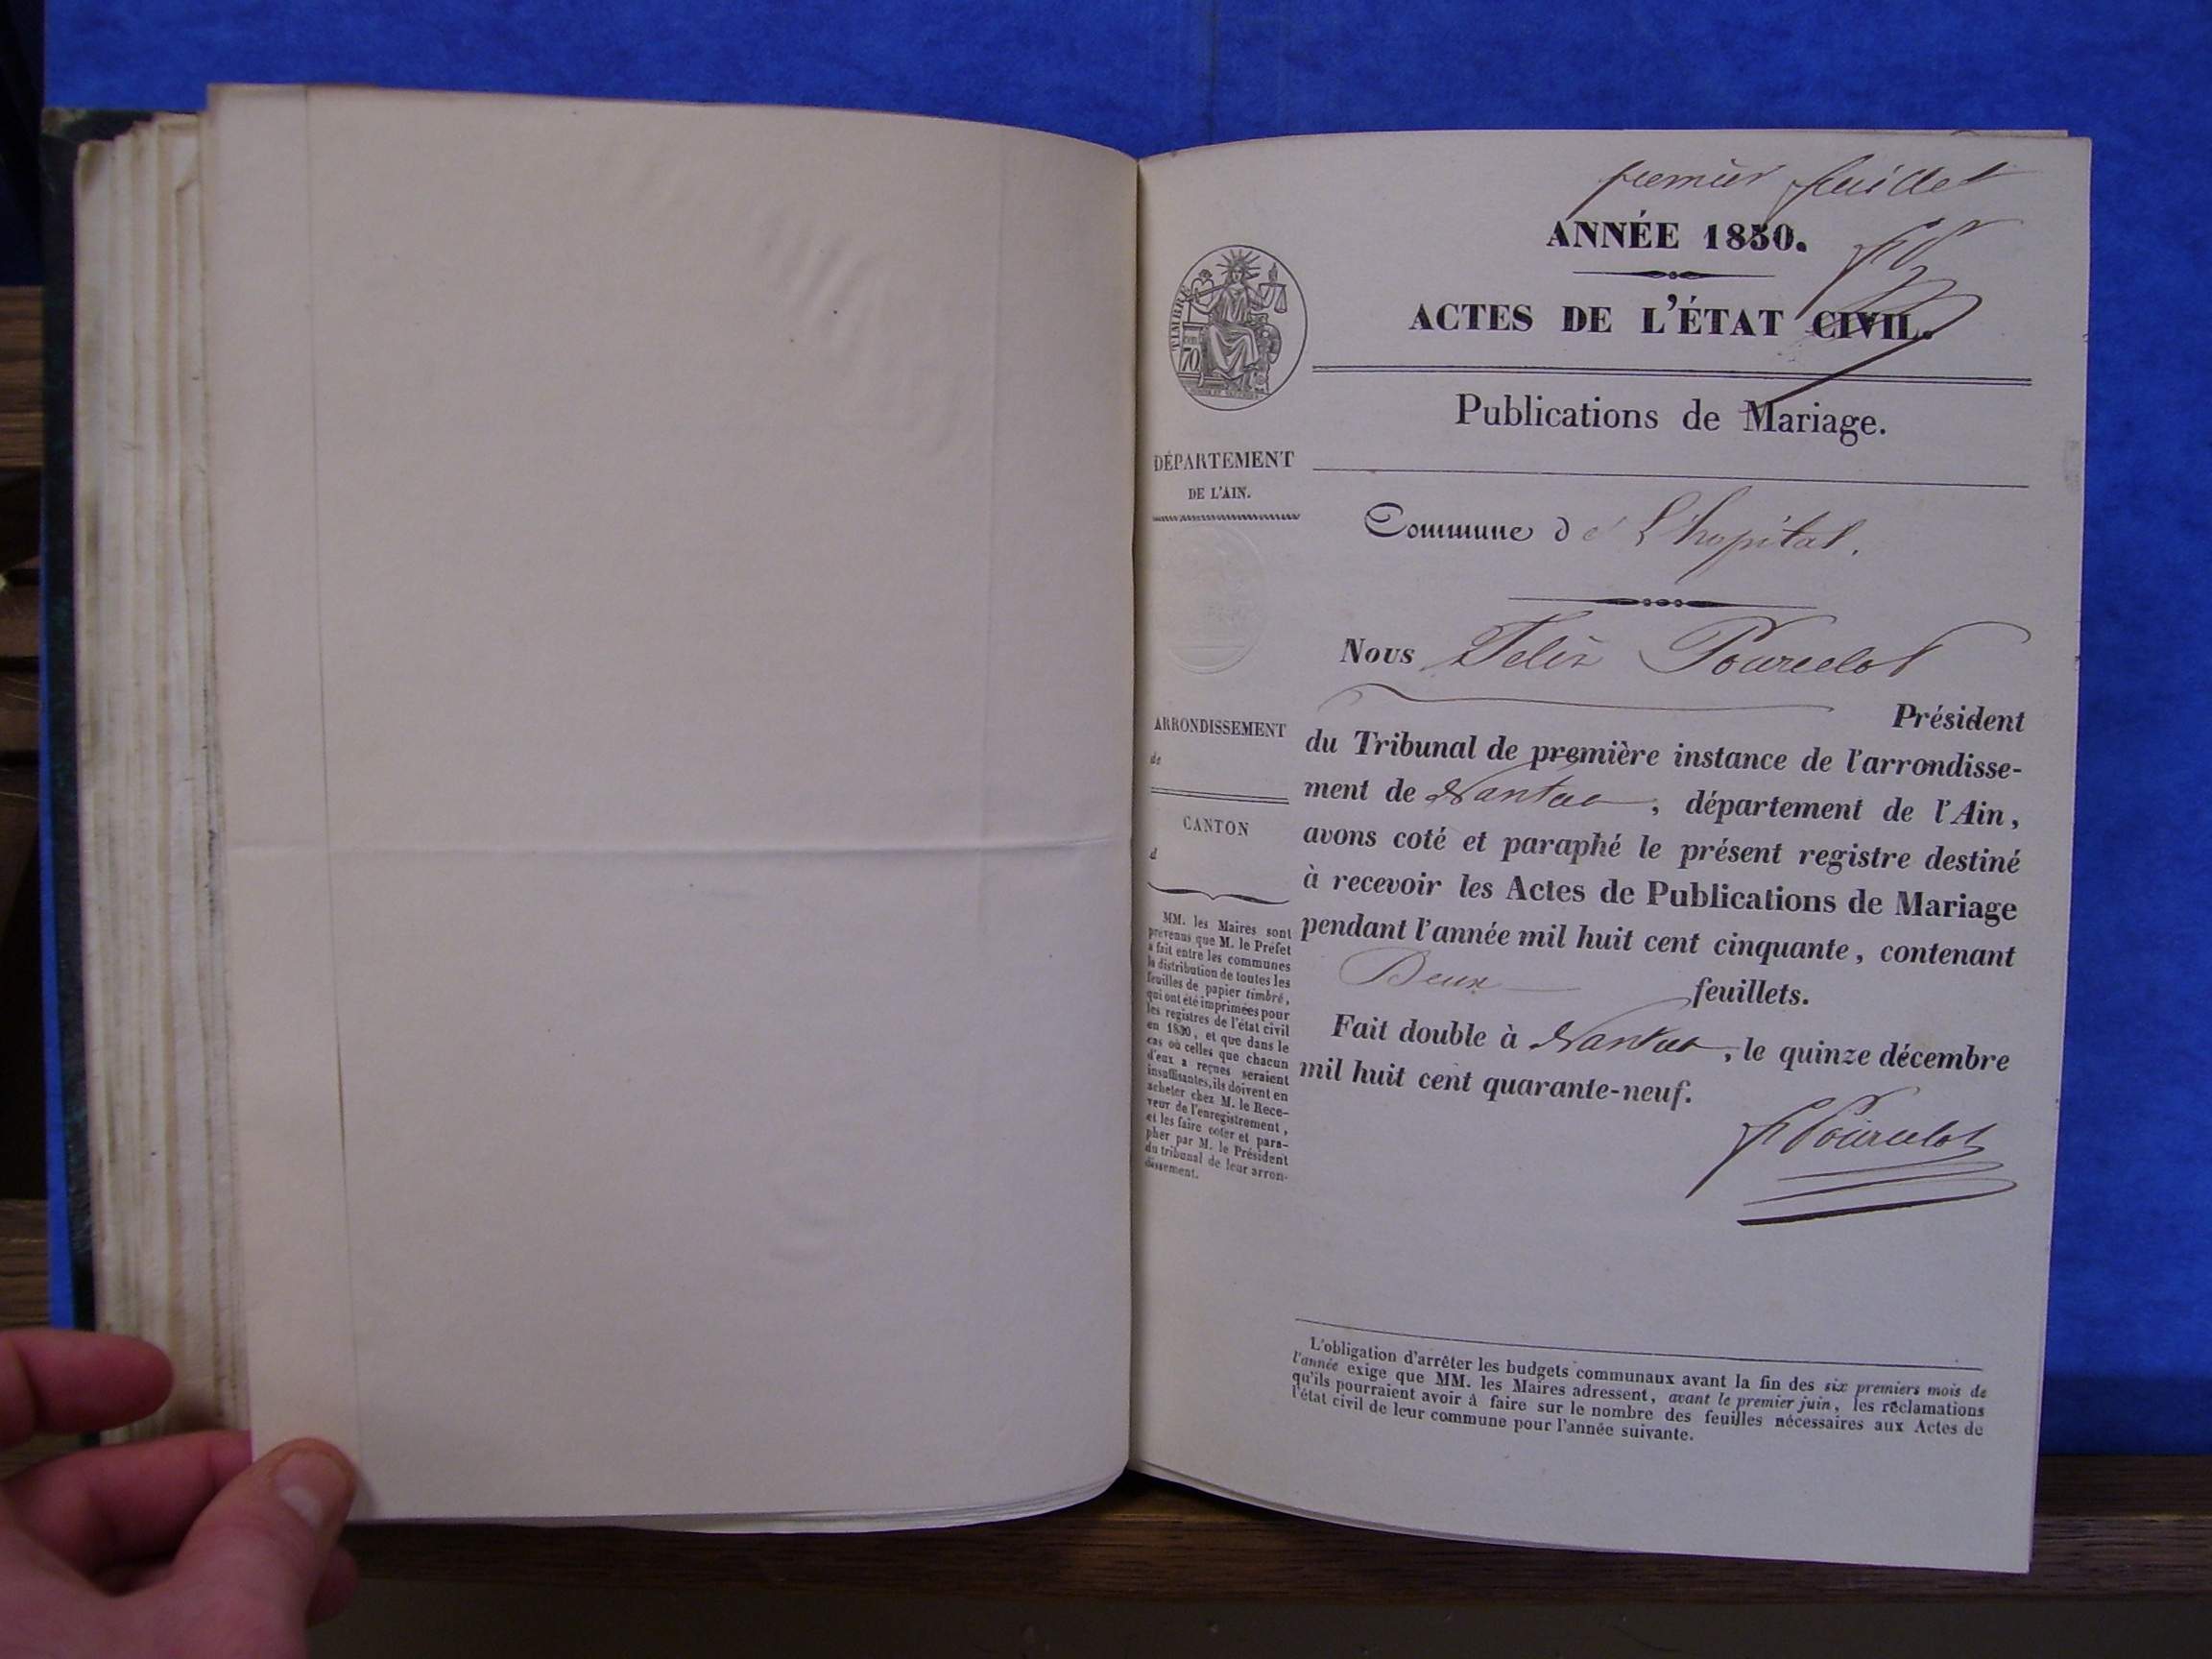 premier feuillet
ANNÉE 1850.
ACTES DE L'ÉTAT CIVIL.
TIMBRE
70
Publications de Mariage.
DÉPARTEMENT
DE L'AIN.
Commune de L'hopital.
Nous Felix Pourcelot
Président
du Tribunal de première instance de l'arrondisse-
ment de Nantua, département de l'Ain,
avons coté et paraphé le présent registre destiné
à recevoir les Actes de Publications de Mariage
pendant l'année mil huit cent cinquante, contenant
Deux feuillets.
Fait double à Nantua, le quinze décembre
mil huit cent quarante-neuf.
F Pourcelot
ARRONDISSEMENT
de
CANTON
d
MM. les Maires sont
prévenus que M. le Préfet
a fait entre les communes
la distribution de toutes les
feuilles de papier timbré,
qui ont été imprimées pour
les registres de l'état civil
en 1850, et que dans le
cas où celles que chacun
d'eux a reçues seraient
insuffisantes, ils doivent en
acheter chez M. le Rece-
veur de l'enregistrement,
et les faire coter et para-
pher par M. le Président
du tribunal de leur arron-
dissement.
L'obligation d'arrêter les budgets communaux avant la fin des six premiers mois de
l'année exige que MM. les Maires adressent, avant le premier juin, les réclamations
qu'ils pourraient avoir à faire sur le nombre des feuilles nécessaires aux Actes de
l'état civil de leur commune pour l'année suivante.